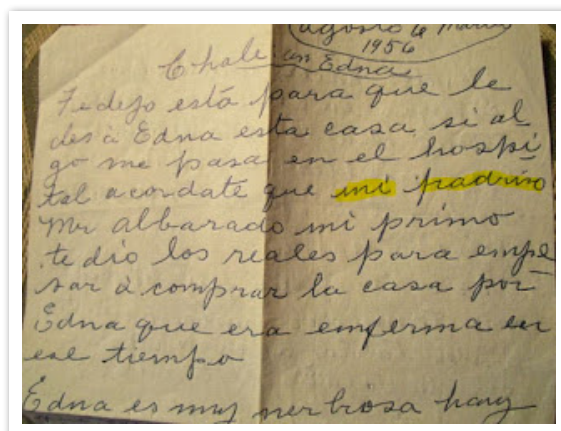 agosto 6 Martes
1956
Chale un Edna
Te dejo está para que le
des à Edna esta casa si al
go me pasa en el hospi
tal acordate que mi padrino
Mr albarado mi primo
te dio los reales para empe
sar à comprar la casa por
Edna que era emferma en
ese tiempo
Edna es muy nerbiosa hay